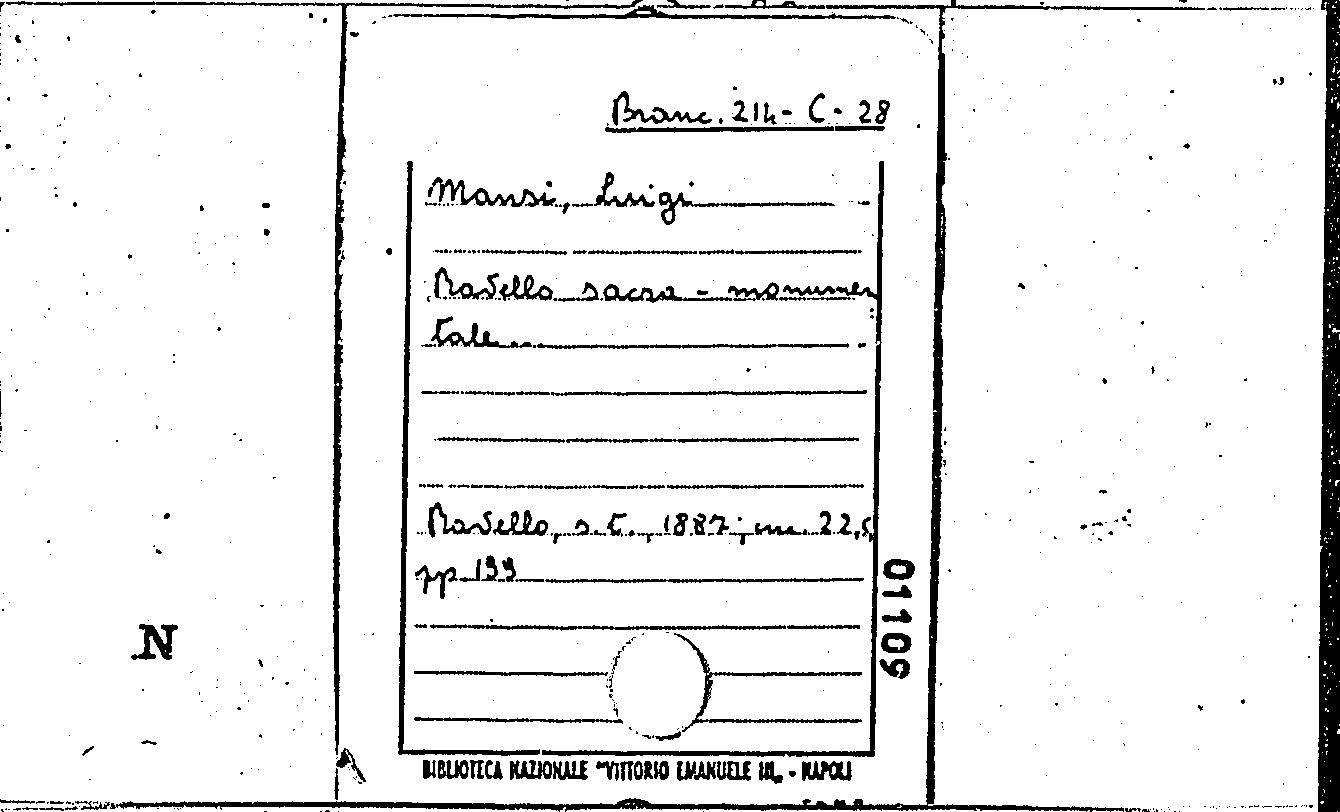 Branc. 214- C- 28
Mansi, Luigi
Ravello sacra - monumen
tale...
Ravello, s.t., 1887; cm. 22,5,
pp. 199
01109
N
BIBLIOTECA NAZIONALE "VITTORIO EMANUELE III" - NAPOLI